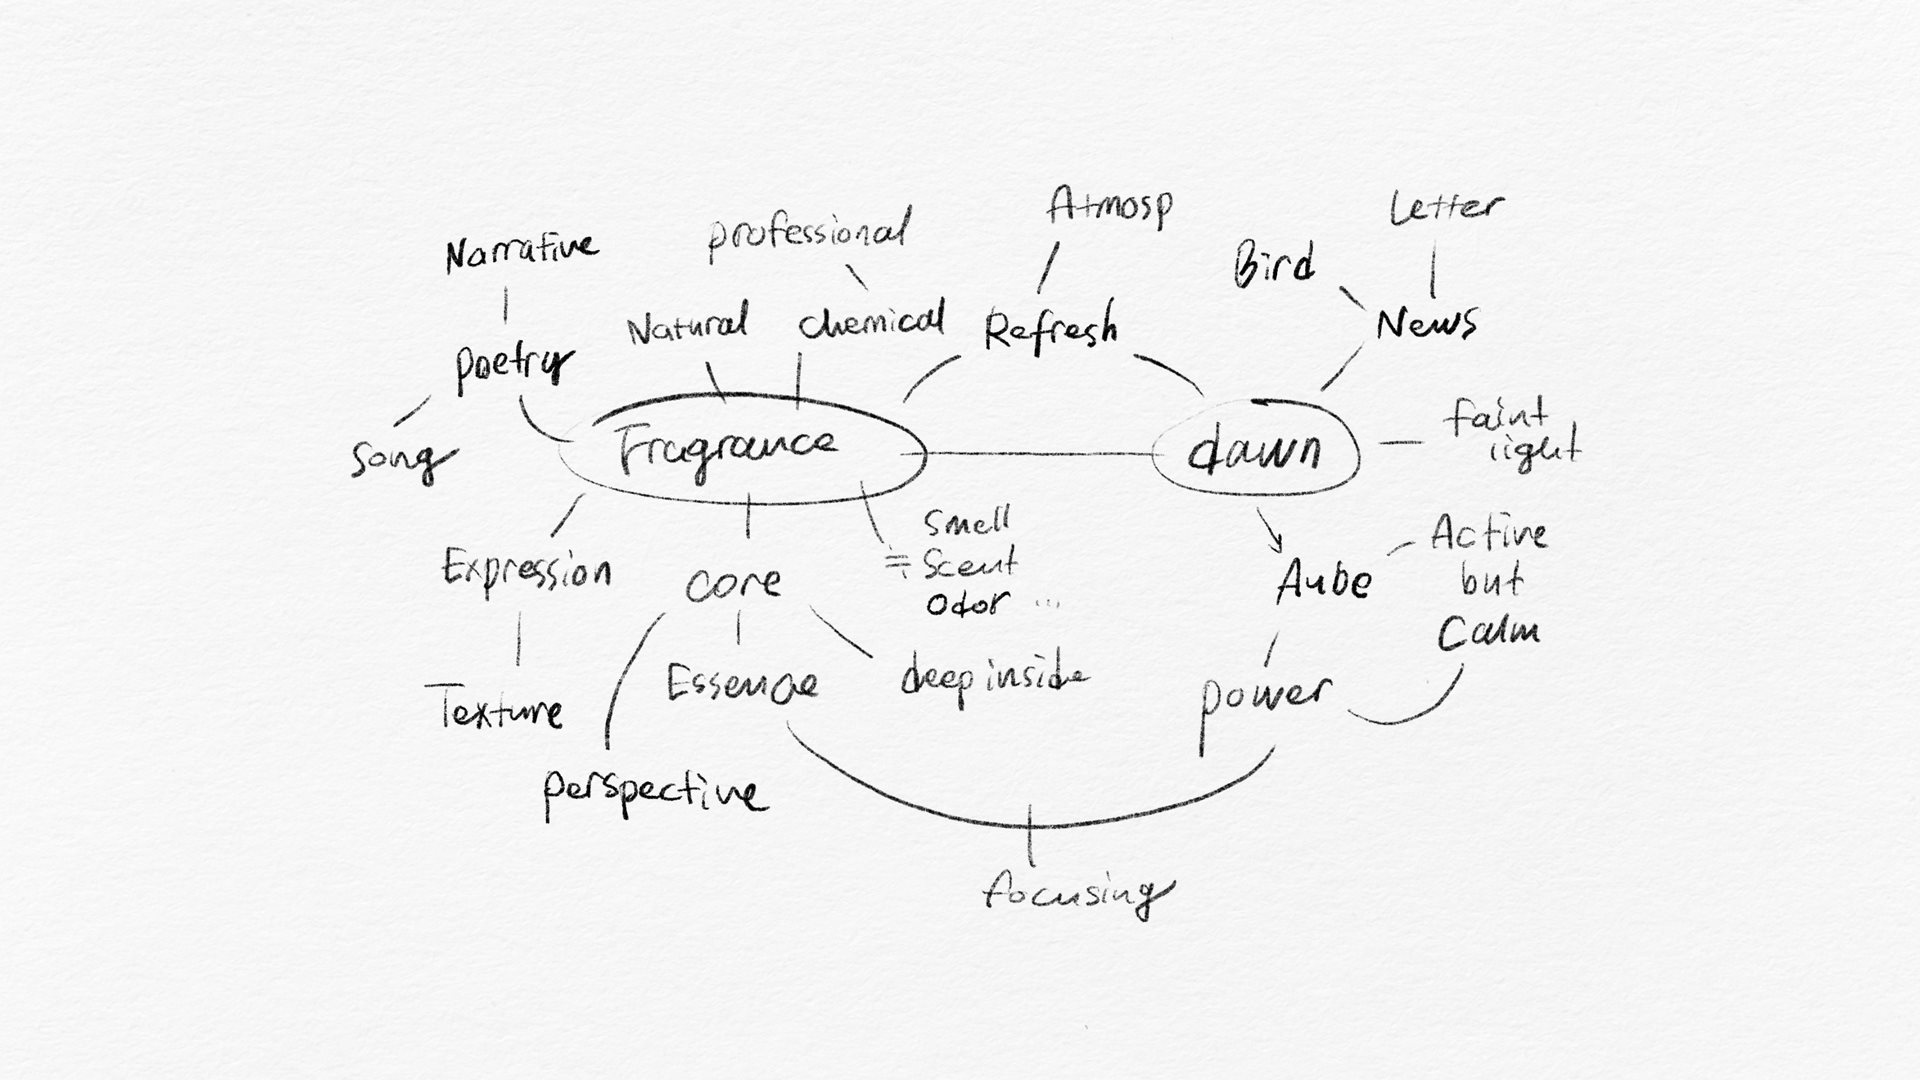 Atmosp
Letter
professional
Narrative
Bird
Natural
chemical
Refresh
News
Poetry
faint
light
song
Fragrance
dawn
Smell
≒ Scent
Odor ...
Active
but
Calm
Expression
core
Aube
Essence
deep inside
power
Texture
perspective
focusing